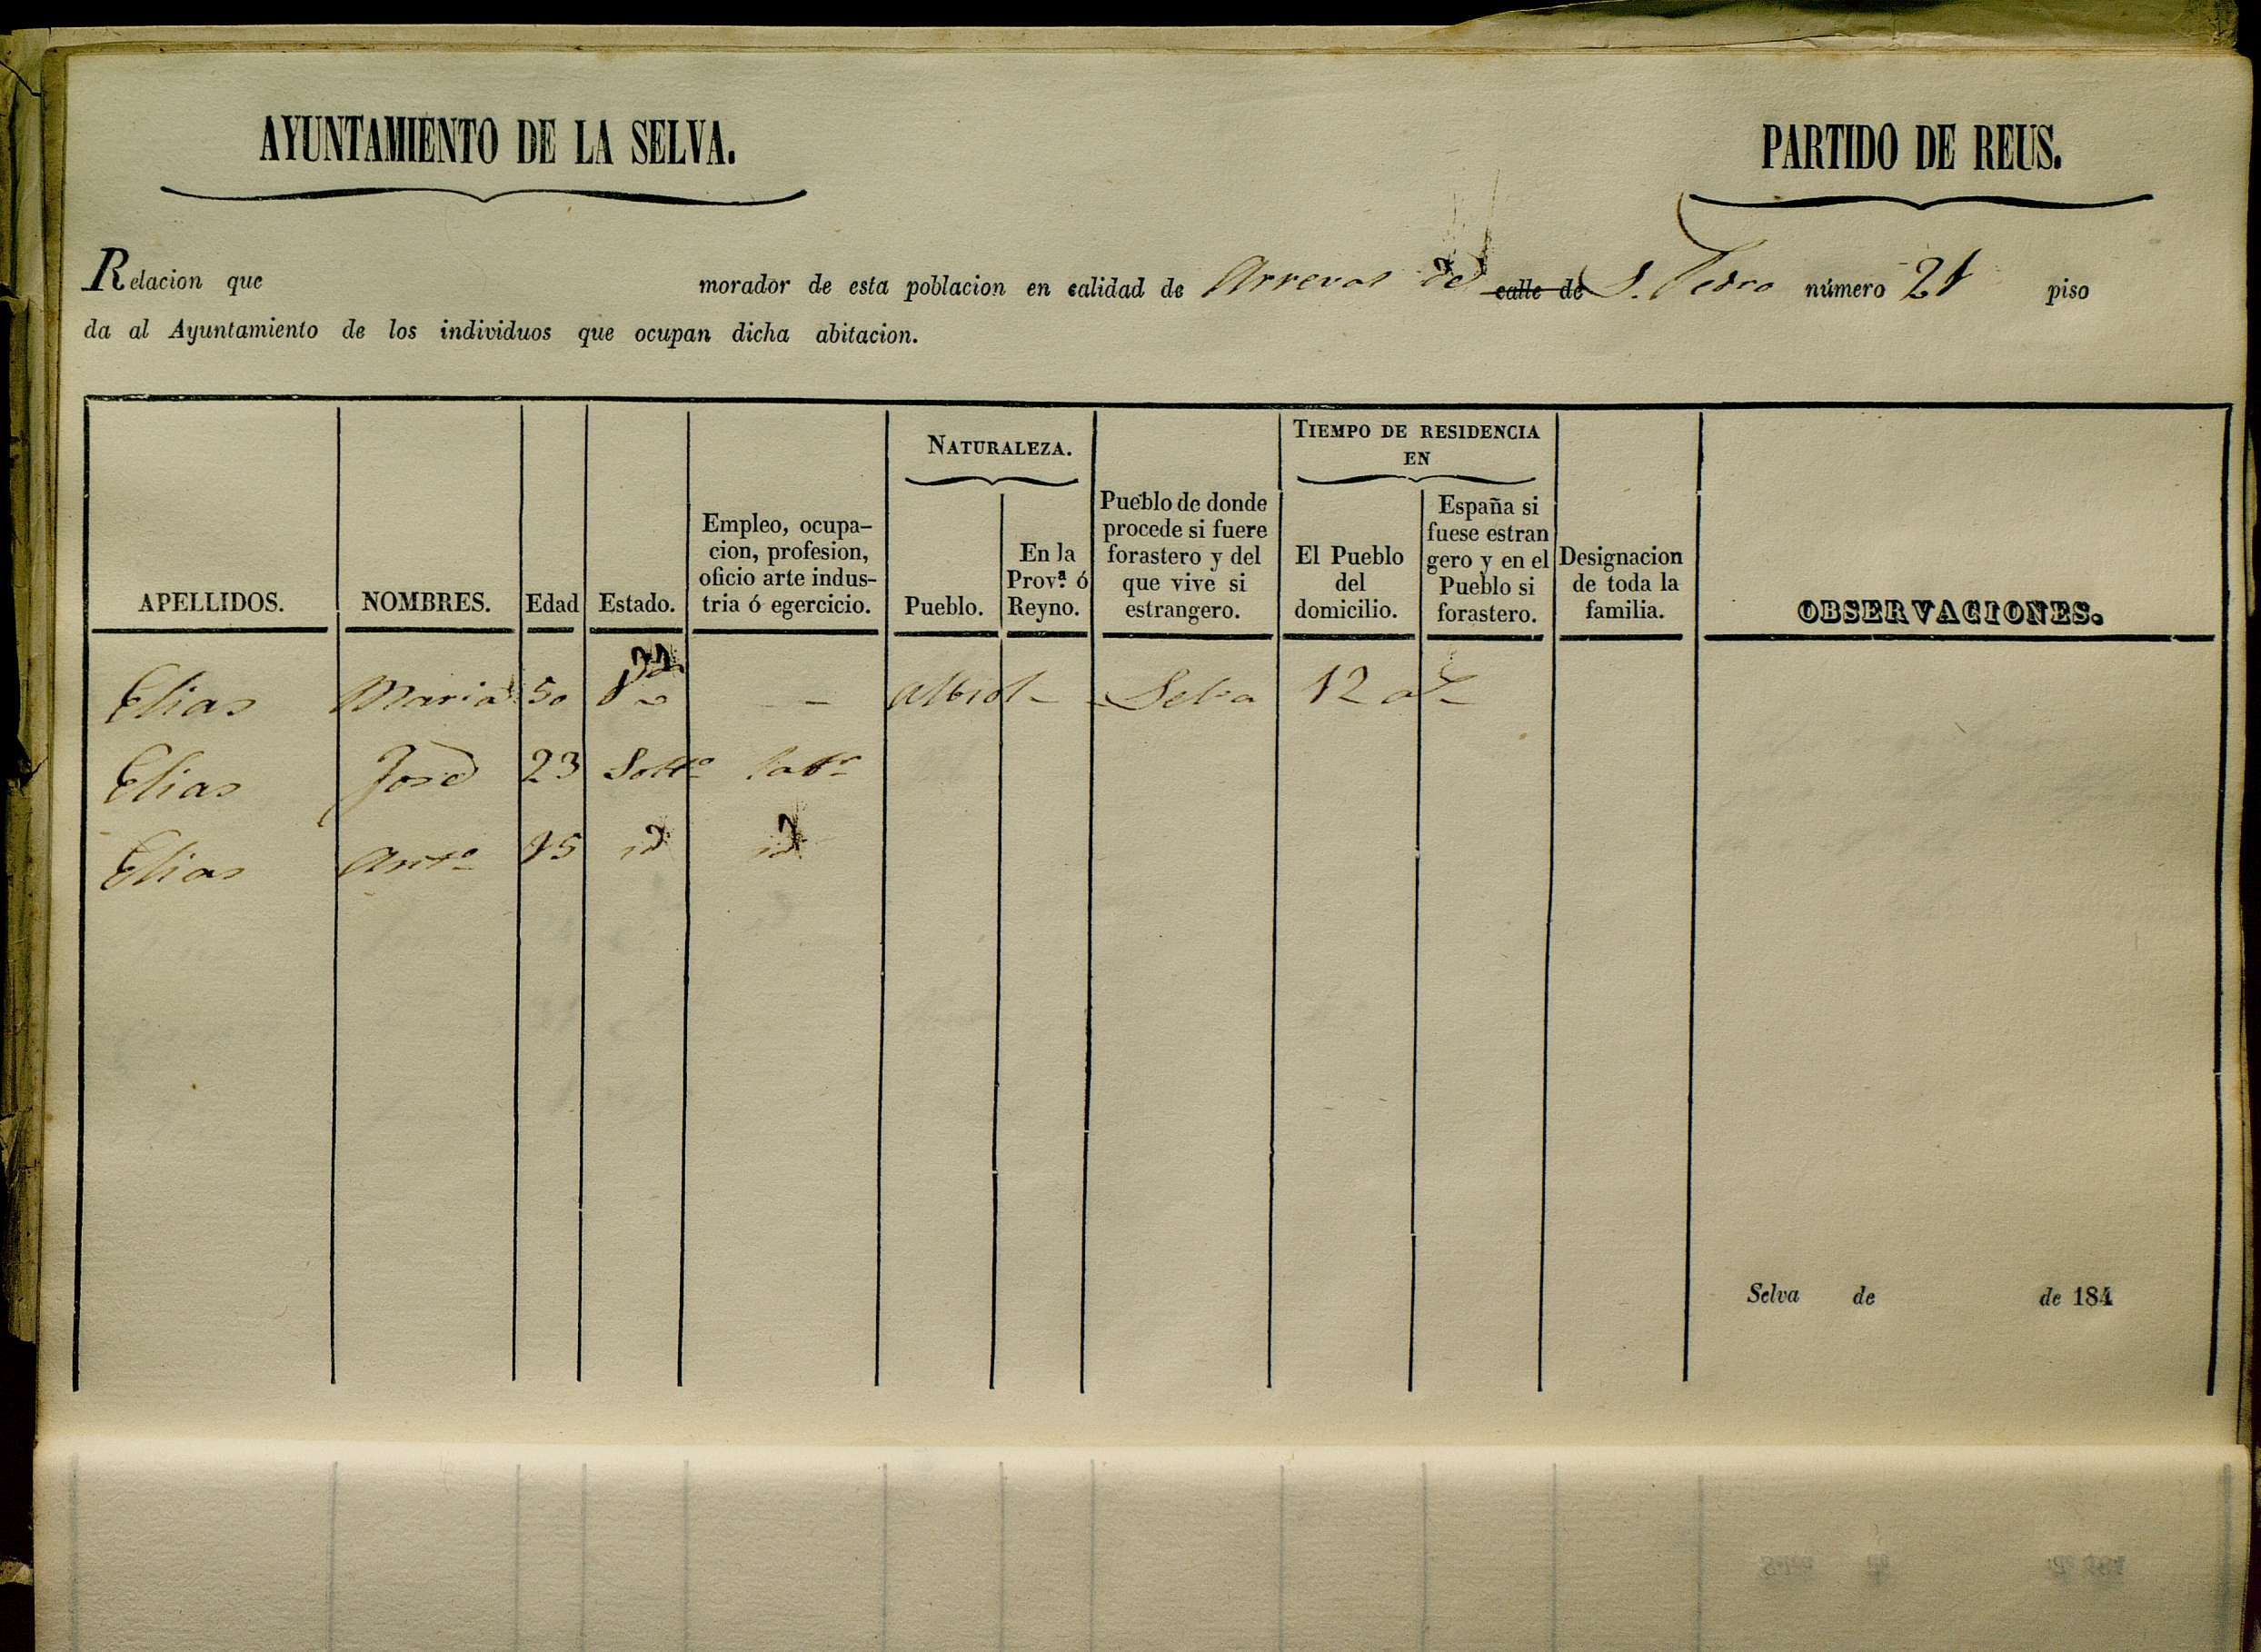 AYUNTAMIENTO DE LA SELVA.
PARTIDO DE REUS.
Relacion que morador de esta poblacion en calidad de Arreval de calle de S. Pedro número 21 piso
da al Ayuntamiento de los individuos que ocupan dicha abitacion.
NATURALEZA.
TIEMPO DE RESIDENCIA
EN
APELLIDOS.
NOMBRES.
Edad
Estado.
Empleo, ocupa-
cion, profesion,
oficio arte indus-
tria ó egercicio.
Pueblo.
En la
Prov.ª ó
Reyno.
Pueblo de donde
procede si fuere
forastero y del
que vive si
estrangero.
El Pueblo
del
domicilio.
España si
fuese estran
gero y en el
Pueblo si
forastero.
Designacion
de toda la
familia.
OBSERVACIONES.
Elias Maria 50 Vda - Albiol - Selva 12 as
Elias José 23 Solto labr
Elias Anto 15 id id
Selva de de 184